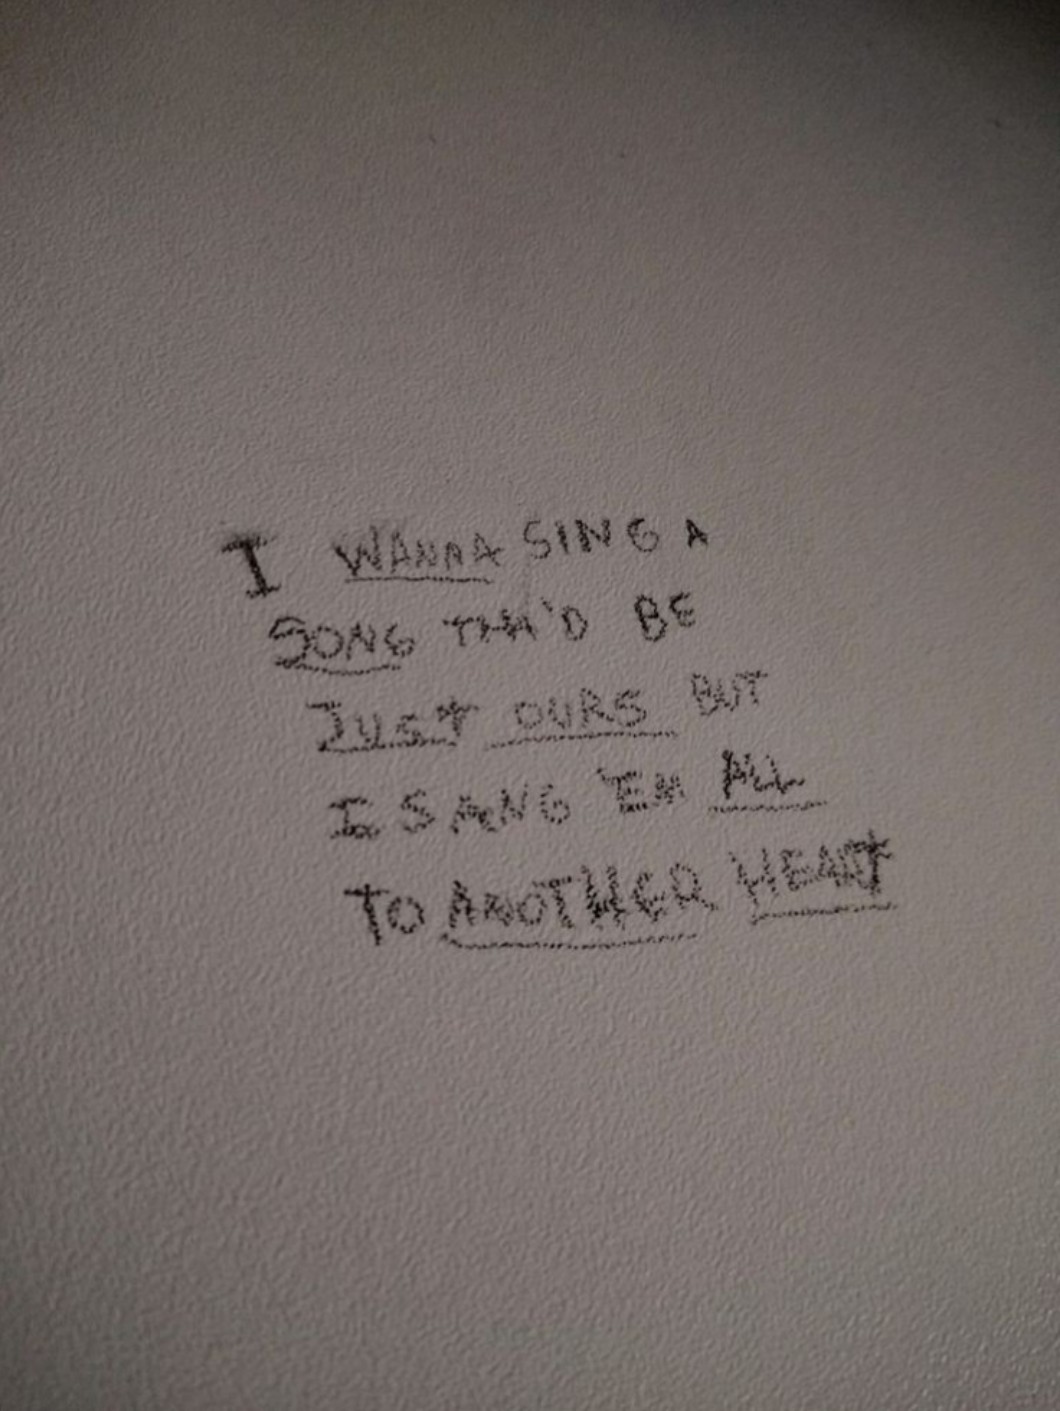 I WANNA SING A
SONG THA'D BE
JUST OURS BUT
I SANG 'EM ALL
TO ANOTHER HEART